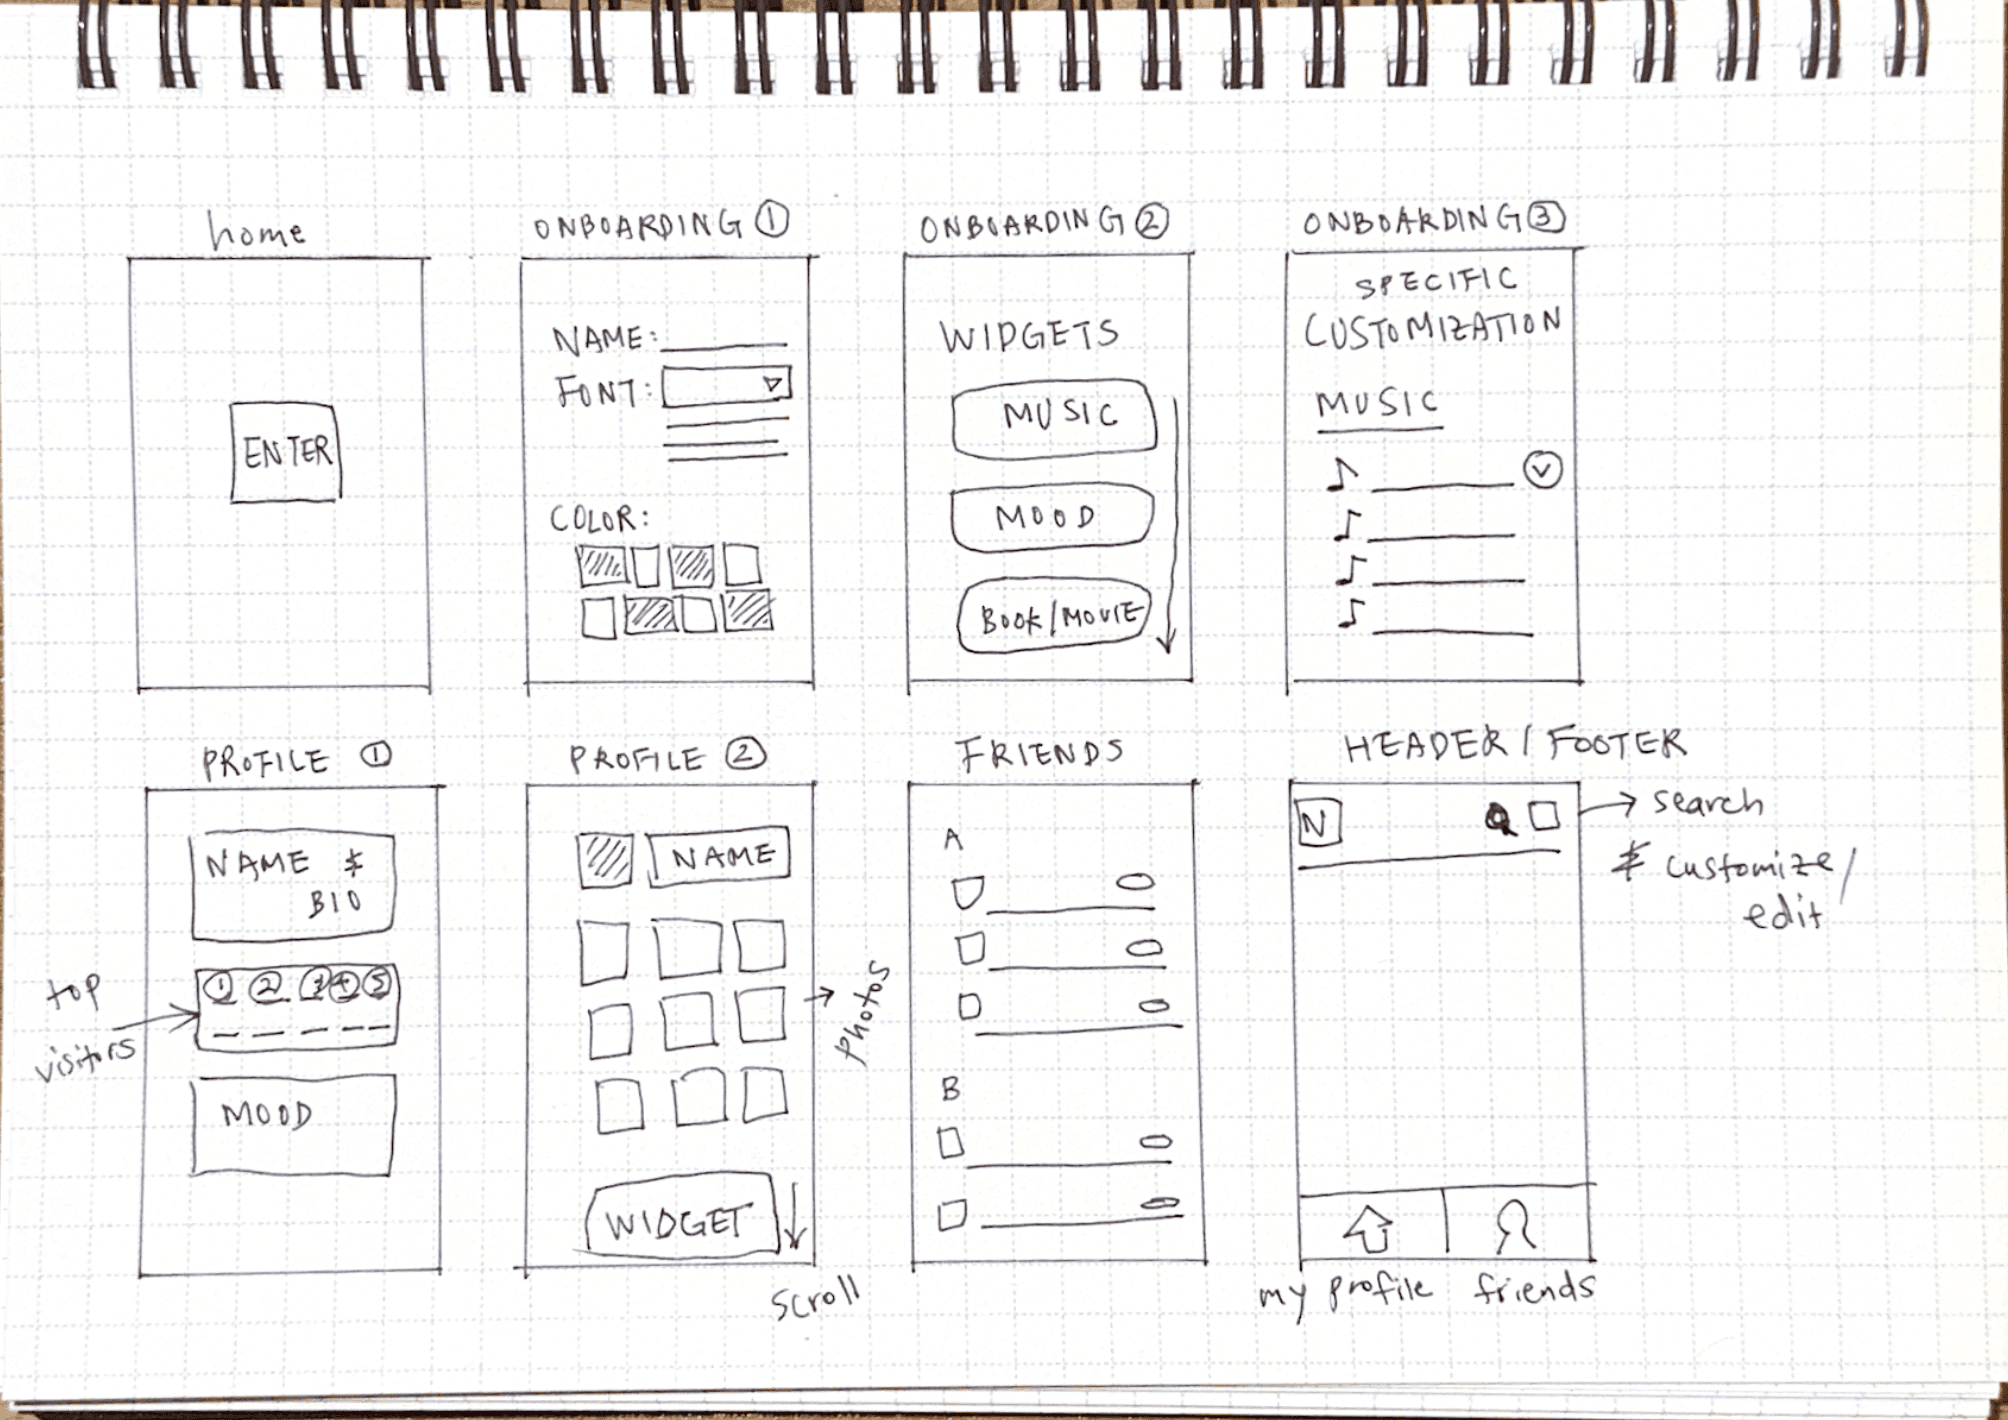 home
ENTER
ONBOARDING ①
NAME:
FONT:
COLOR:
ONBOARDING ②
WIDGETS
MUSIC
MOOD
BOOK/MOVIE
ONBOARDING ③
SPECIFIC
CUSTOMIZATION
MUSIC
PROFILE ①
NAME &
BIO
① ② ③ ④ ⑤
top
visitors
MOOD
PROFILE ②
NAME
photos
WIDGET
scroll
FRIENDS
A
B
HEADER / FOOTER
N
search
& customize/
edit
my profile
friends